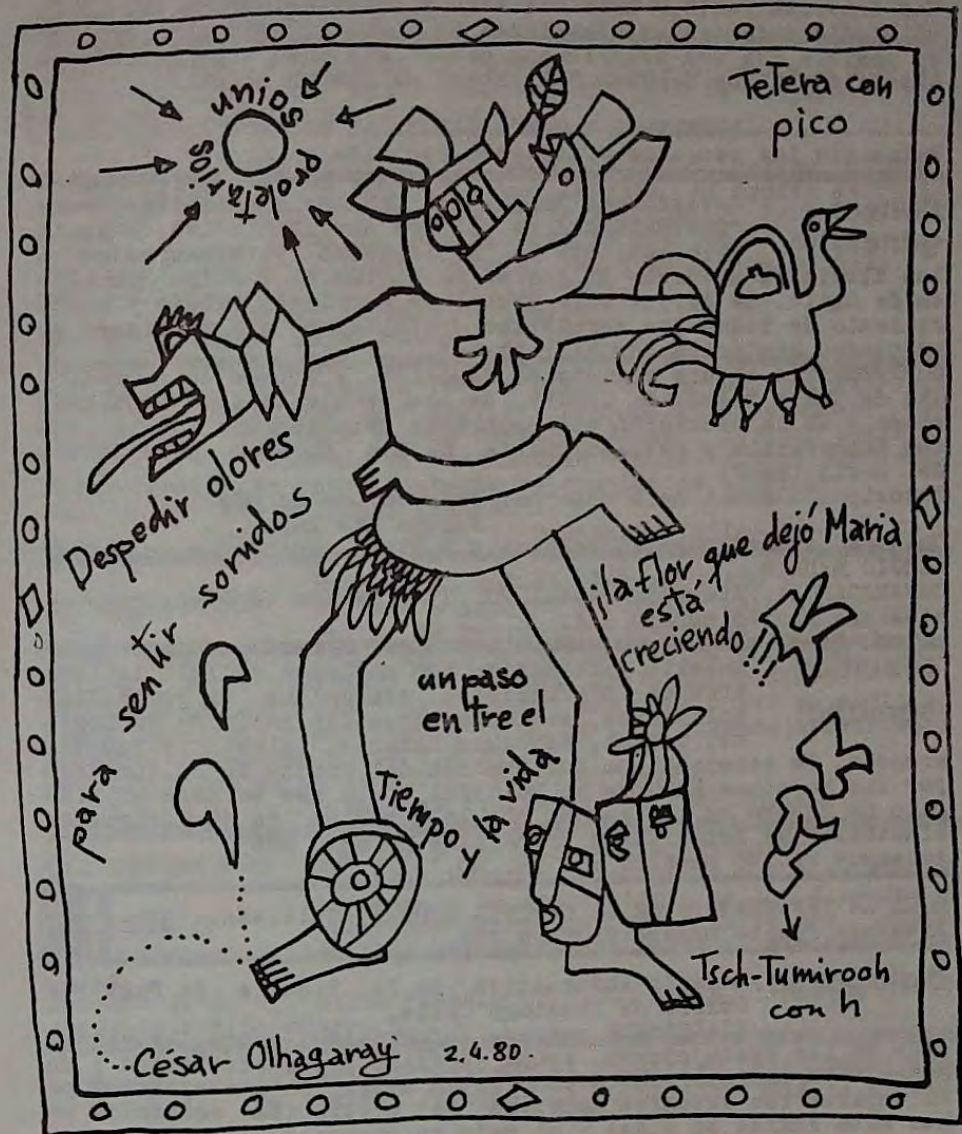 unios
proletarios
Tetera con
pico
Despedir olores
para sentir sonidos
¡la flor, que dejó Maria
esta
creciendo!!!
un paso
entre el
Tiempo y la vida
Tsch-Tumirooh
con h
César Olhagaray 2.4.80.